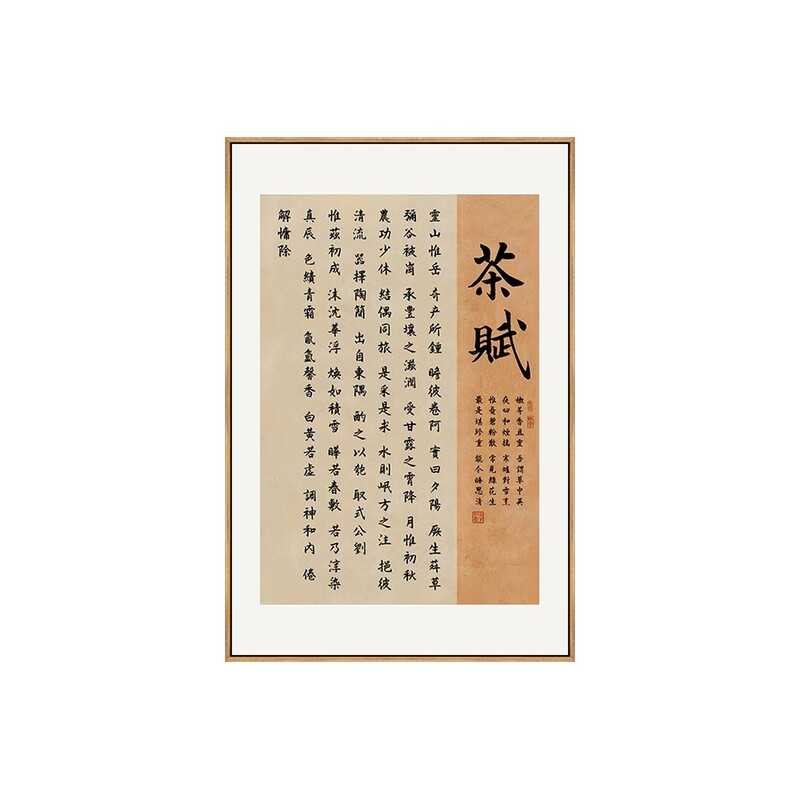 茶賦
嫩芽香且靈 吾謂草中英
夜臼和煙搗 寒爐對雪烹
惟憂碧粉散 常見綠花生
最是堪珍重 能令睡思清
靈山惟岳 奇产所鍾 瞻彼卷阿 實曰夕陽 厥生荈草
彌谷被崗 承豐壤之滋潤 受甘露之霄降 月惟初秋
農功少休 結偶同旅 是采是求 水則岷方之注 挹彼
清流 器擇陶簡 出自東隅 酌之以匏 取式公劉
惟茲初成 沫沈華浮 煥如積雪 曄若春敷 若乃淳染
真辰 色績青霜 氤氳馨香 白黄若虛 調神和内 倦
解慵除